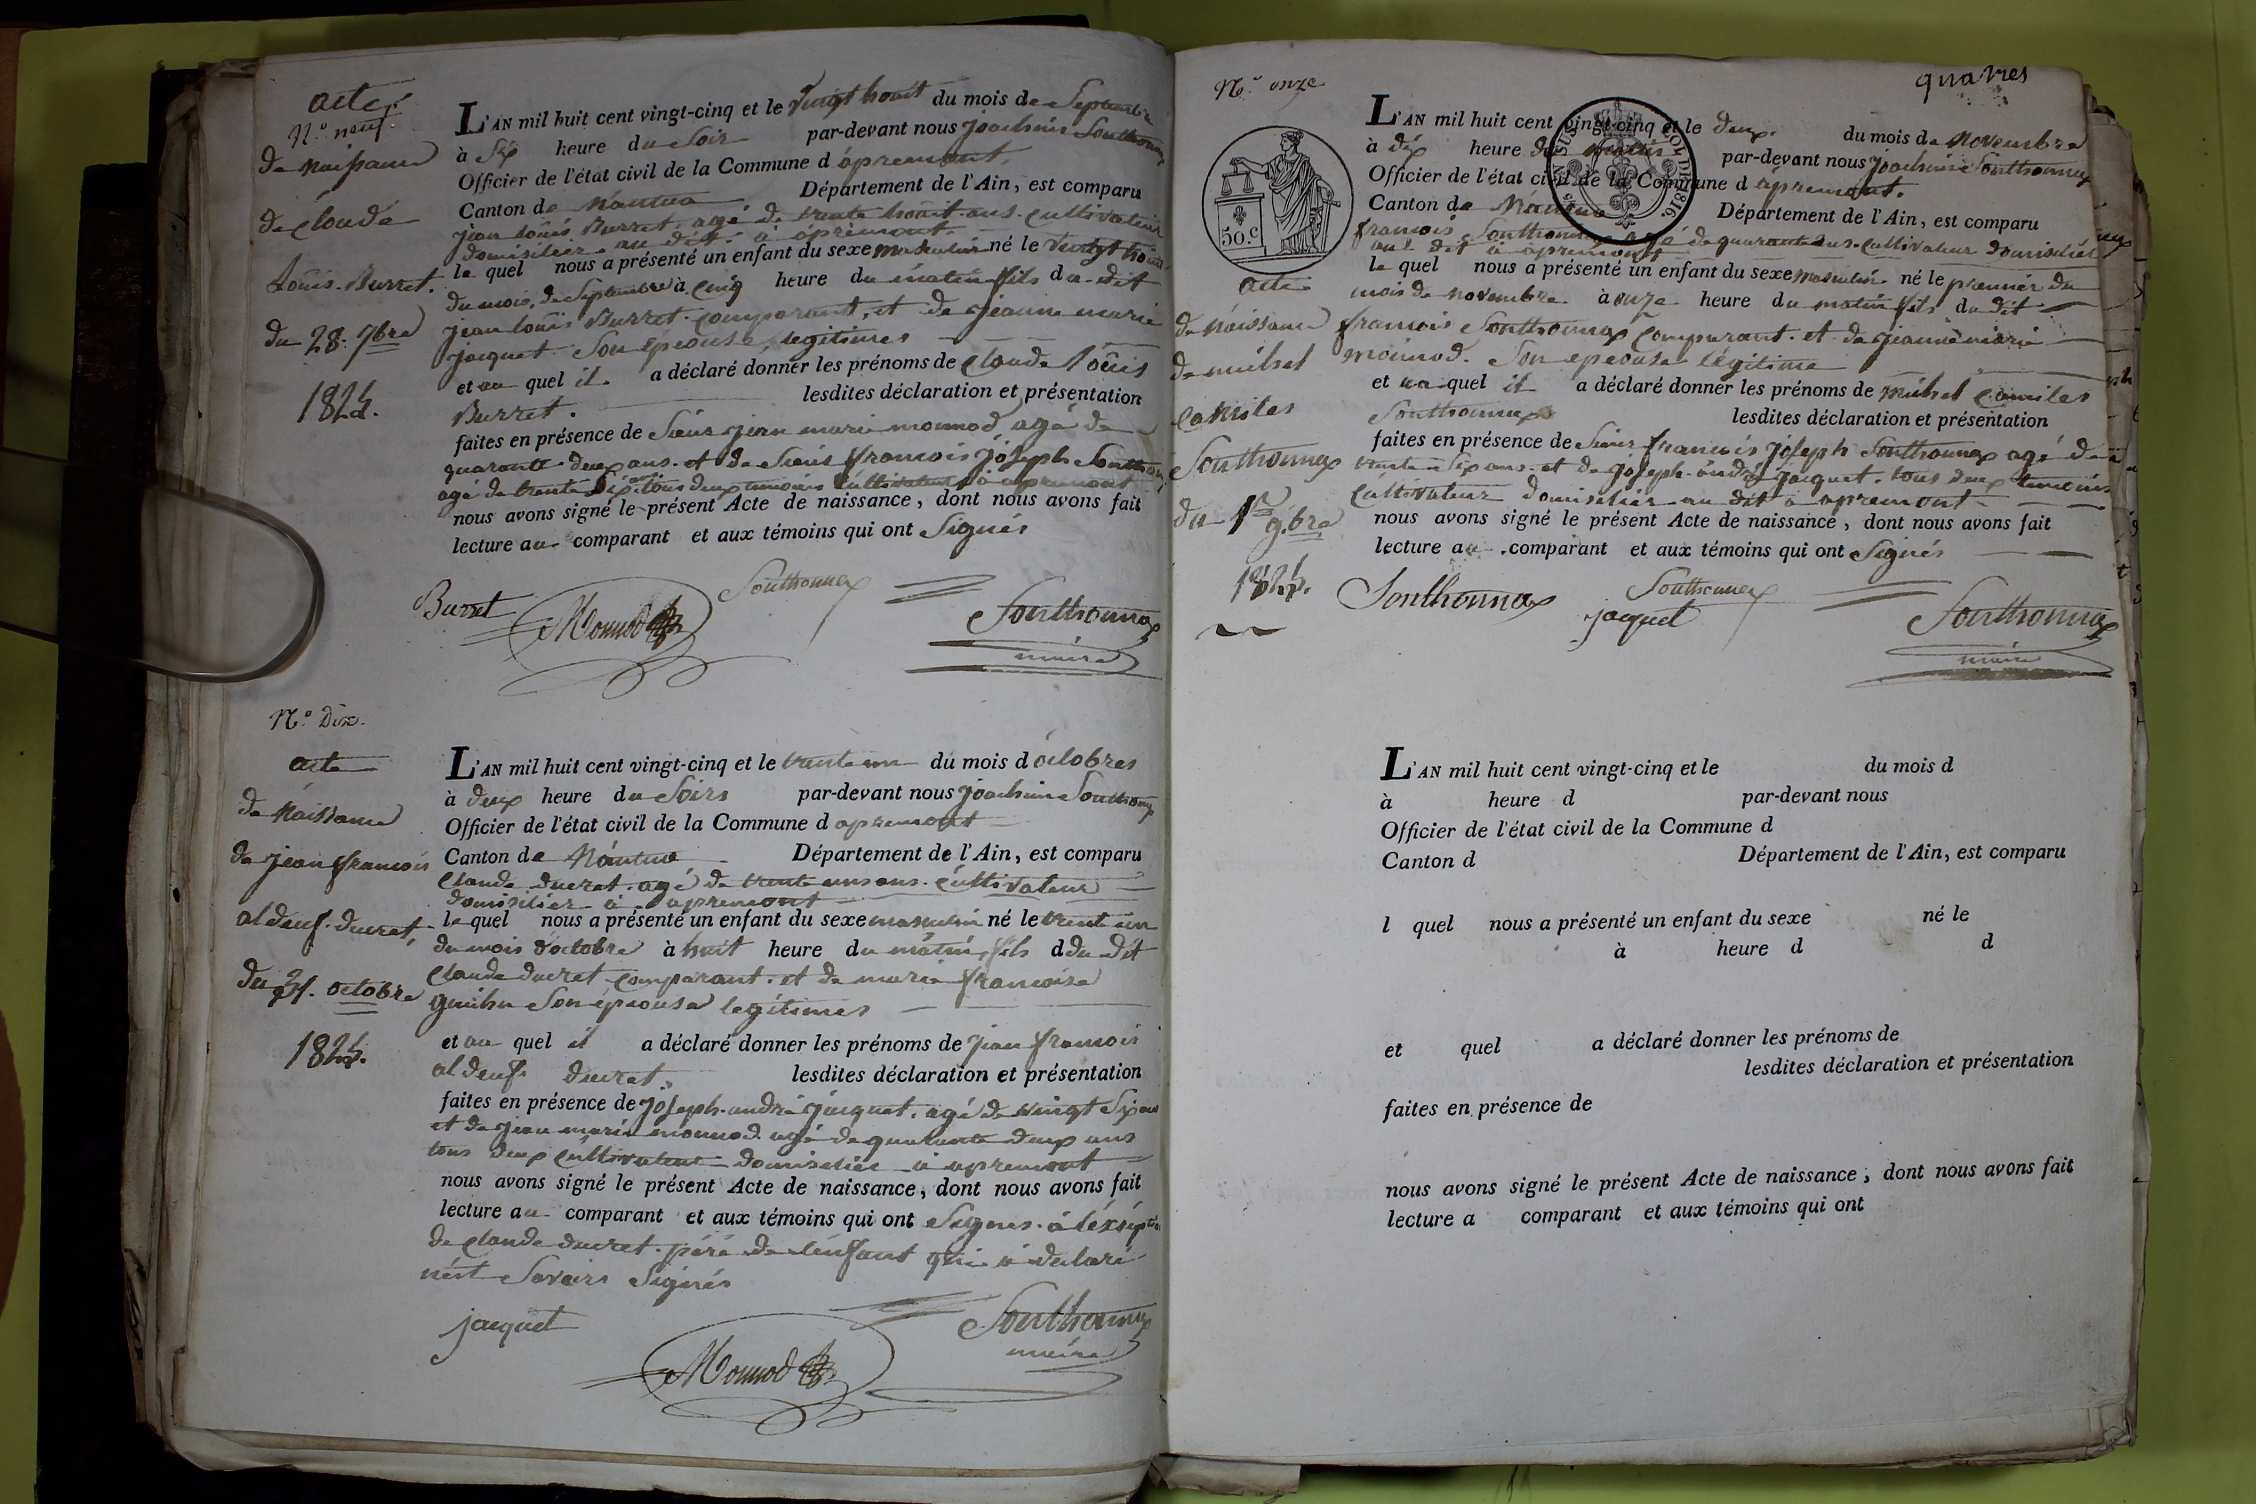 acte
N.o neuf.
de naissance
de claude
Louis Burret.
du 28. 7bre
1825.
L'AN mil huit cent vingt-cinq et le vingt houit du mois de Septembre
à Six heure du Soir par-devant nous joachim Southonnax
Officier de l'état civil de la Commune d apremont,
Canton de Nantua Département de l'Ain, est comparu
jean louis Burret, agé de trente houit ans. cultivateur
domicilier au dit. à apremont
le quel nous a présenté un enfant du sexe masculin né le vingt houit
du mois de Septembre à cinq heure du matin fils du dit
jean louis Burret comparant, et de jeanne marie
jacquet Son epeouse, legitimes
et au quel il a déclaré donner les prénoms de claude Louis
Burret. lesdites déclaration et présentation
faites en présence de Sieur jean marie monnod agé de
quarante deux ans. et de Sieur francois joseph Southonnax
agé de trente Six ans tous deux temoins cultivateurs à apremont
nous avons signé le présent Acte de naissance, dont nous avons fait
lecture au comparant et aux témoins qui ont Signés
Burret Monnod Southonnax Southonnax
maire
N.o Dix.
acte
de Naissance
de jean francois
aldeuf. ducret,
du 31. octobre
1825.
L'AN mil huit cent vingt-cinq et le trente un du mois d octobres
à deux heure du Soirs par-devant nous joachim Southonnax
Officier de l'état civil de la Commune d apremont
Canton de Nantua Département de l'Ain, est comparu
Claude ducret. agé de trente uns ans. cultivateur
domicilier à apremont
le quel nous a présenté un enfant du sexe masculin né le trente un
du mois d'octobre à huit heure du matin, fils d du dit
Claude ducret comparant. et de marie francoise
Son épeouse legitimes
et au quel il a déclaré donner les prénoms de jean francois
aldeuf ducret, lesdites déclaration et présentation
faites en présence de joseph andré jacquet. agé de vingt Six ans
et de jean marie monnod agé de quarante deux ans
tous deux cultivateur domicilier à apremont
nous avons signé le présent Acte de naissance, dont nous avons fait
lecture au comparant et aux témoins qui ont Signes à l'éxseption
de Claude ducret. péré de lénfant qui a declaré
nést Savoirs Signés
jacquet Monnod Southonnax
maire
quatres
N.o onze
50.c
acte
de Naissance
de michel
Camiles
Southonnax
du 1er 9.bre
1825.
L'AN mil huit cent vingt-cinq et le deux. du mois de Novembre
à dix heure du matin par-devant nous joachim Southonnax
Officier de l'état civil de la Commune d apremont.
Canton de Nantua Département de l'Ain, est comparu
francois Southonnax agé de quarante ans. cultivateur domicilier
au dit à apremont
le quel nous a présenté un enfant du sexe masculin né le premier du
mois de novembre à onze heure du matin fils du dit
francois Southonnax comparant. et de jeanne marie
moinod. Son epeouse légitime
et au quel il a déclaré donner les prénoms de michel Camiles
Southonnax lesdites déclaration et présentation
faites en présence de Sieur francois joseph Southonnax agé de
trente Six ans. et de joseph andré jacquet. tous deux temoins
Cultivateur domicilier au dit à apremont
nous avons signé le présent Acte de naissance, dont nous avons fait
lecture au comparant et aux témoins qui ont Signés
Southonnax Southonnax
jacquet Southonnax
maire
L'AN mil huit cent vingt-cinq et le du mois d
à heure d par-devant nous
Officier de l'état civil de la Commune d
Canton d Département de l'Ain, est comparu
l quel nous a présenté un enfant du sexe né le
à heure d d
et quel a déclaré donner les prénoms de
lesdites déclaration et présentation
faites en présence de
nous avons signé le présent Acte de naissance, dont nous avons fait
lecture a comparant et aux témoins qui ont